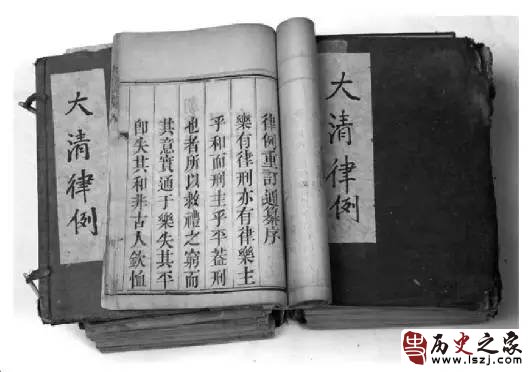 大清律例
律例重訂通纂序
樂有律刑亦有律樂主
乎和而刑主乎平葢刑
也者所以救禮之窮而
其意實通于樂失其平
卽失其和非古人欽恤
大清律例
历史之家
www.lszj.com